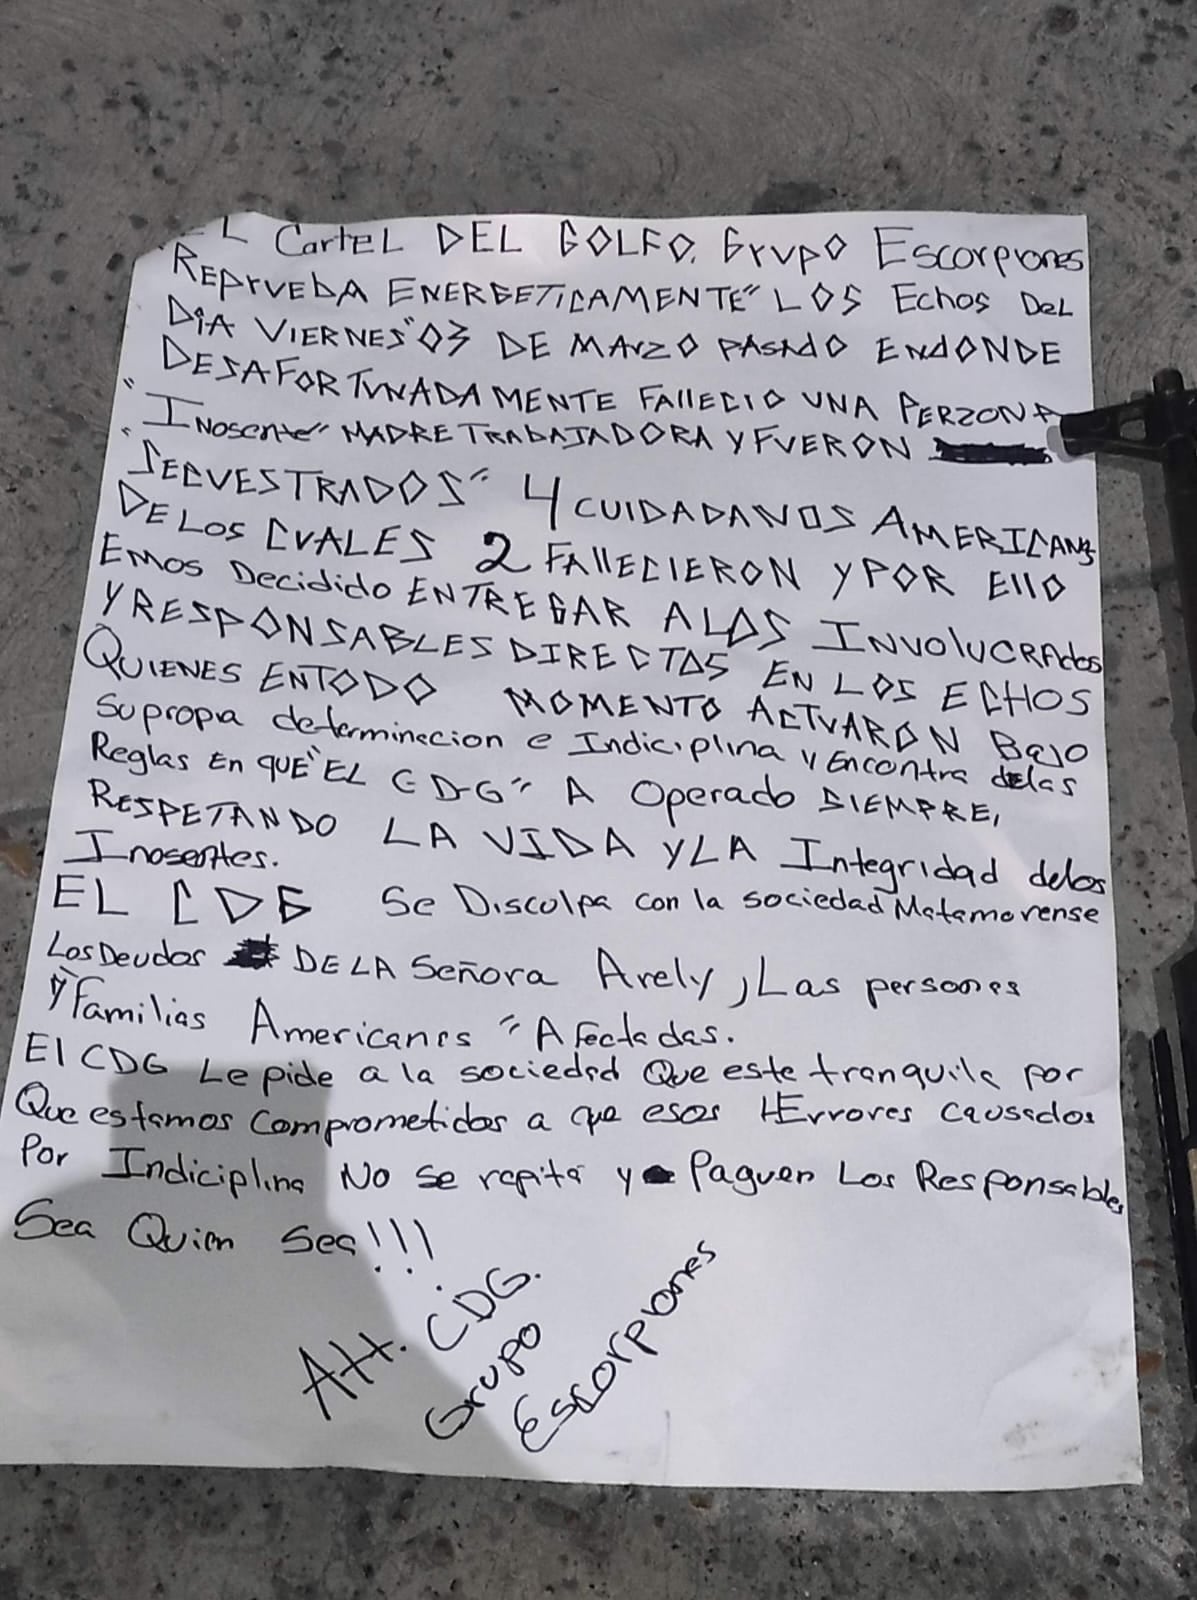 EL Cartel DEL GOLFO. Grupo Escorpiones
REPruEbA ENERGETICAMENTE" LOS Echos DeL
DiA VIERNES "03 DE MArzO PASAdO ENdONDE
DESAFORTUNADAMENTE FAllECIO UNA PERZONA
"INosente" MADRE TRAbAJADORA Y FUERON
"SECUESTRADOS" 4 CUIDADANOS AMERICANOS
DE LOS CUALES 2 FAllECIERON Y POR Ello
EMOS Decidido ENTREGAR A LOS INVOLUCRAdos
Y RESPONSABLES DIRECTOS EN LOS ECHOS
QUIENES ENTODO MOMENTO ACTUARON BAJO
Su propia determinecion e Indiciplina y Encontra delas
Reglas EN QUE "EL CDG" A Operado SIEMPRE,
RESPETANDO LA VIDA Y LA Integridad delos
Inosentes.
EL CDG Se Disculpa con la sociedad Matamorense
Los Deudos DE LA Señora Arely, Las persones
Y Familias Americanes "Afectadas.
El CDG Le pide a la sociedad Que este tranquila por
Que estamos comprometidos a que esos Errores causados
Por Indiciplina No se repita y Paguen Los Responsables
Sea Quien Sea!!!
Att. CDG.
Grupo
Escorpiones